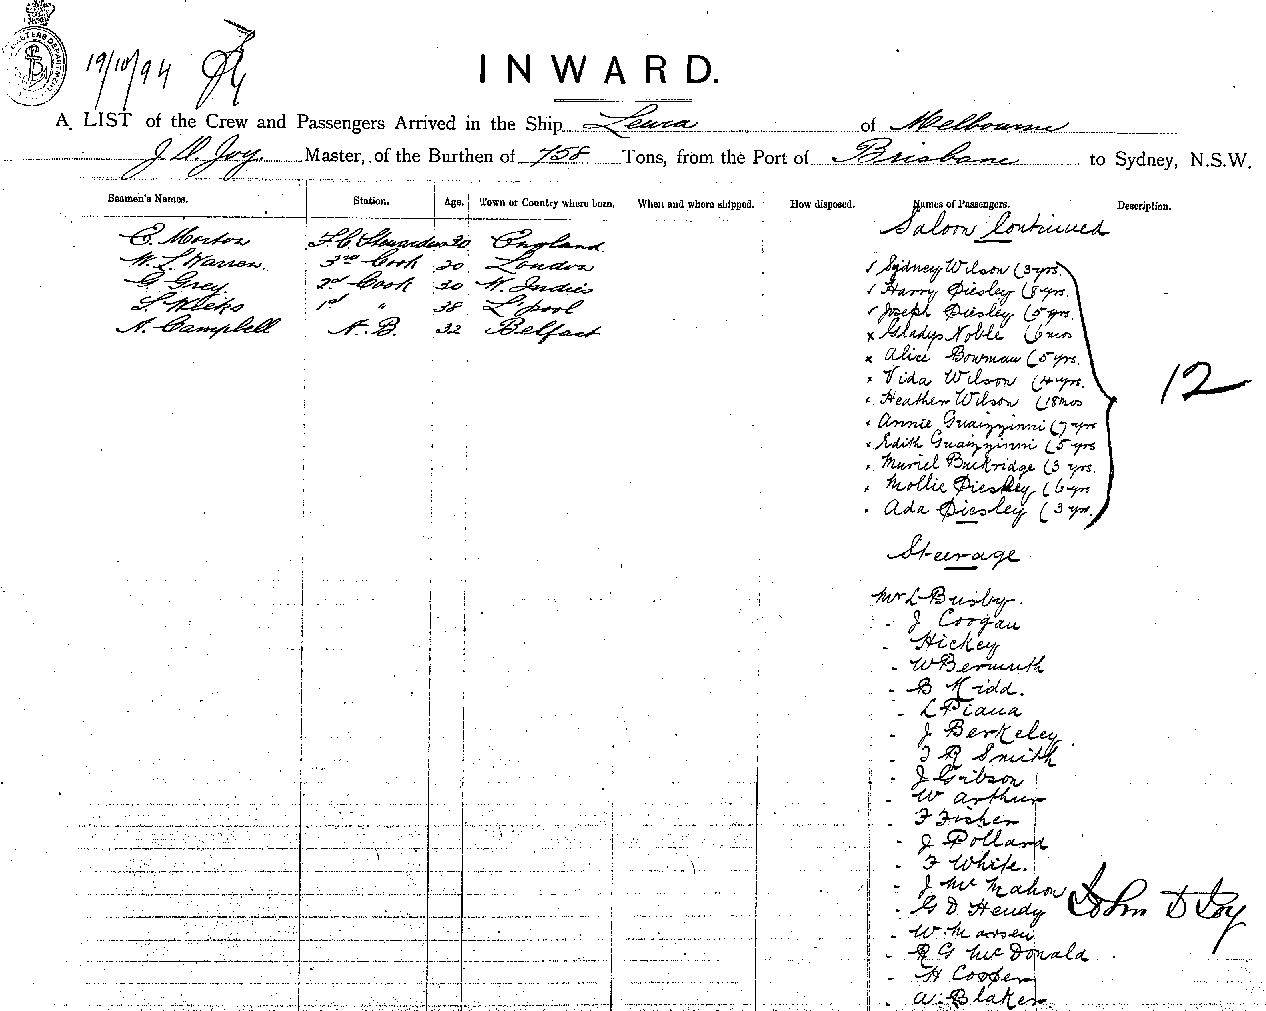 19/10/94
INWARD.
A LIST of the Crew and Passengers Arrived in the Ship Leura of Melbourne
J D. Joy Master, of the Burthen of 758 Tons, from the Port of Brisbane to Sydney, N.S.W.
Seamen's Names. Station. Age. Town or Country where born. When and where shipped. How disposed. Names of Passengers. Description.
Saloon Continued
C. Morton F.C. Stewardess 30 England
W. L. Warren 3rd Cook 20 London
G Grey 2nd Cook 30 W. Indies
S. Weeks 1st " 38 L'pool
A. Campbell A.B. 32 Belfast
Sydney Wilson (3 yrs.
Harry Piesley (8 yrs.
Joseph Piesley (5 yrs.
x Gladys Noble (6 mos
x Alice Bowman (5 yrs.
x Vida Wilson (4 yrs.
Heather Wilson (18 mos
12
Annie Guazzinni (7 yrs
Edith Guazzinni (5 yrs
Muriel Buckridge (3 yrs.
Mollie Piesley (6 yrs
Ada Piesley (3 yrs.
Steerage
Mr L Busby.
- J Coogan
- Hickey
- W Bermuth
- B Kidd.
- L Piana
- J Berkeley
- F R Smith
- J Gibson
- W Arthur
- F Fisher
- J Pollard
- F White.
- J McMahon
- G D Hendy John D Joy
- W Marsen
- R G McDonald
- H Cooper
- A. Blaker